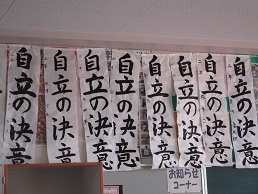 自立の決意
自立の決意
自立の決意
自立の決意
自立の決意
自立の決意
自立の決意
自立の決意
お知らせ
コーナー